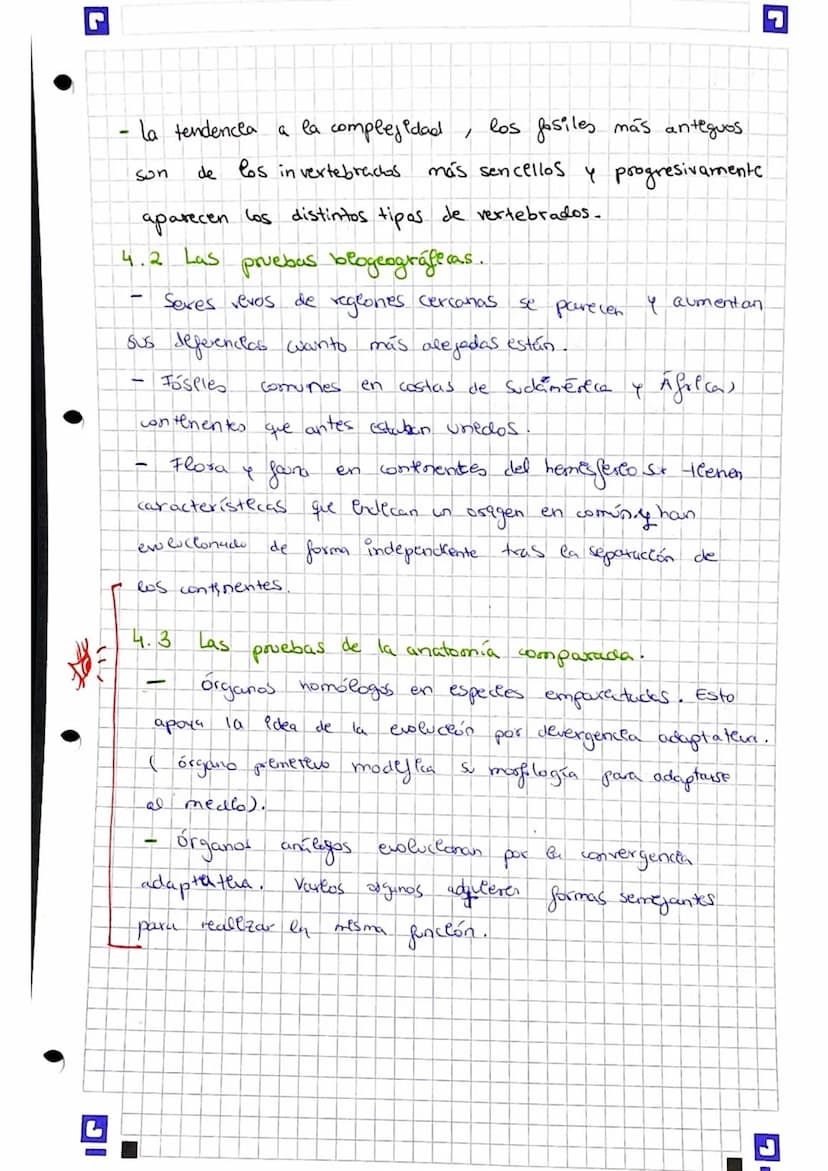 - La tendencia a la complejidad, los fosiles más antiguos
son de los invertebrados más sencillos y progresivamente
aparecen los distintos tipos de vertebrados.
4.2 Las pruebas biogeográficas.
- Seres vivos de regiones cercanas se parecen y aumentan
sus diferencias cuanto más alejadas están.
- Fósiles comunes en costas de Sudámérica y África,
continentes que antes estaban unidos.
- Flora y fauna en continentes del hemisferio sur tienen
características que indican un origen en común y han
evolucionado de forma independiente tras la separación de
los continentes.
4.3 Las pruebas de la anatomía comparada.
- órganos homólogos en especies emparentadas. Esto
apoya la idea de la evolución por divergencia adaptativa.
( órgano primitivo modifica su morfología para adaptarse
al medio).
- órganos análogos evolucionan por la convergencia
adaptativa. Varios órganos adquieren formas semejantes
para realizar la misma función.